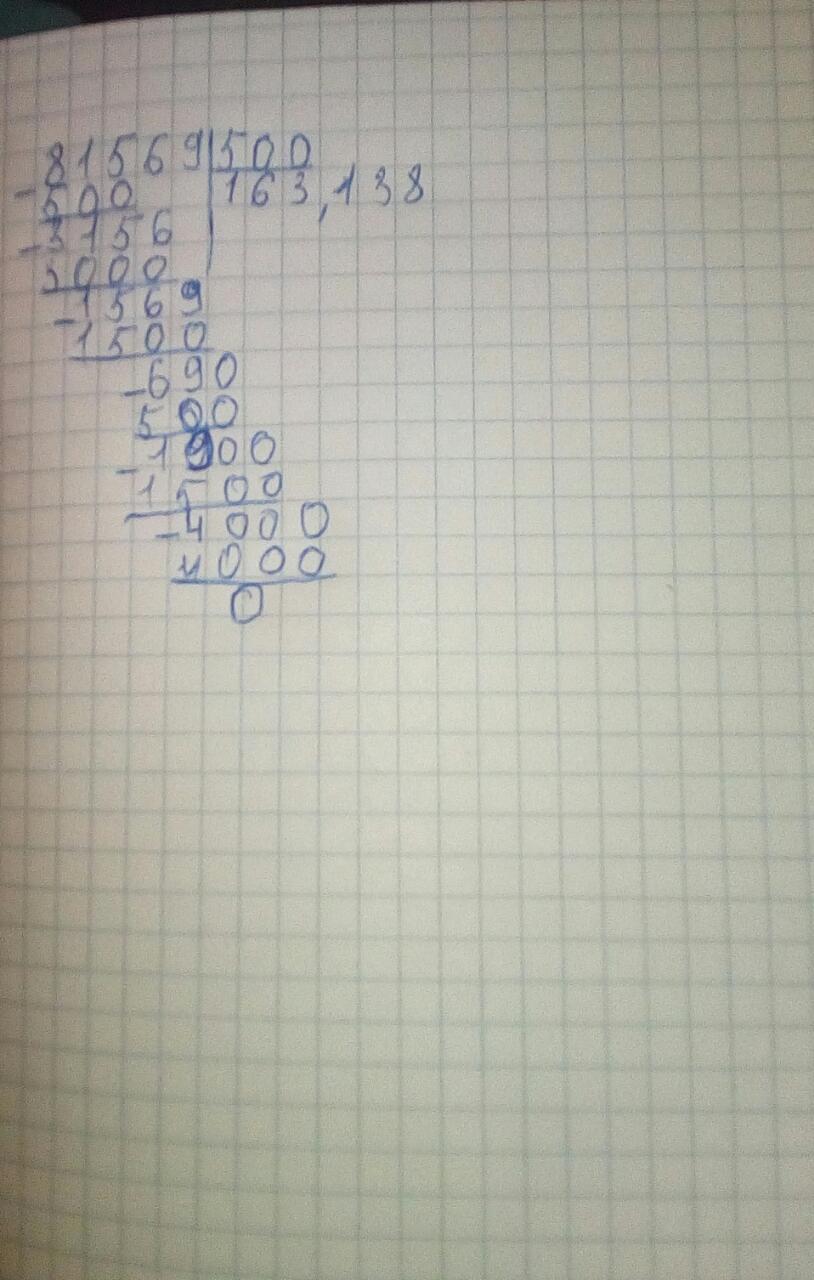 -81569|500
-500 163,138
-3156
3000
-1569
1500
-690
500
-1900
1500
-4000
4000
0